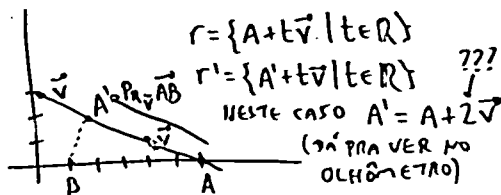 r={A+tv⃗ | t∈ℝ}
r'={A'+tv⃗ | t∈ℝ}
???
NESTE CASO A'=A+2v⃗
(DÁ PRA VER NO
OLHÔMETRO)
v⃗
A'
PR_v⃗ AB⃗
v⃗
B
A